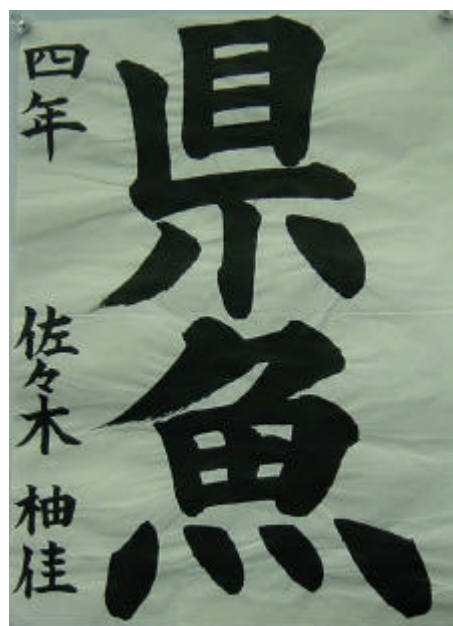 県魚
四年 佐々木 柚佳